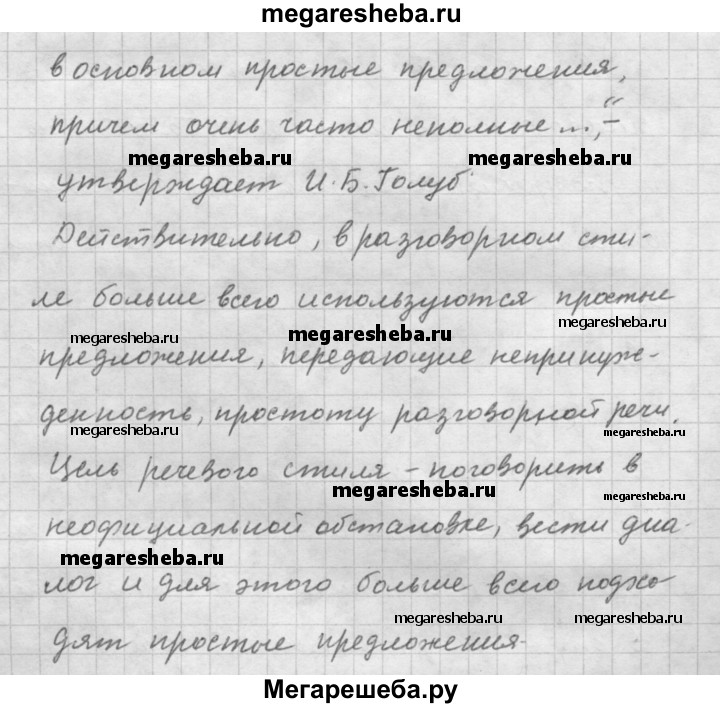 megaresheba.ru
в основном простые предложения,
причем очень часто неполные...," –
megaresheba.ru megaresheba.ru
утверждает И.Б.Голуб.
Действительно, в разговорном сти-
ле больше всего используются простые
megaresheba.ru megaresheba.ru megaresheba.ru
предложения, передающие непринуж-
денность, простоту разговорной речи.
megaresheba.ru megaresheba.ru
Цель речевого стиля – поговорить в
megaresheba.ru megaresheba.ru
неофициальной обстановке, вести диа-
megaresheba.ru
лог и для этого больше всего подхо-
megaresheba.ru megaresheba.ru
дят простые предложения.
Мегарешеба.ру